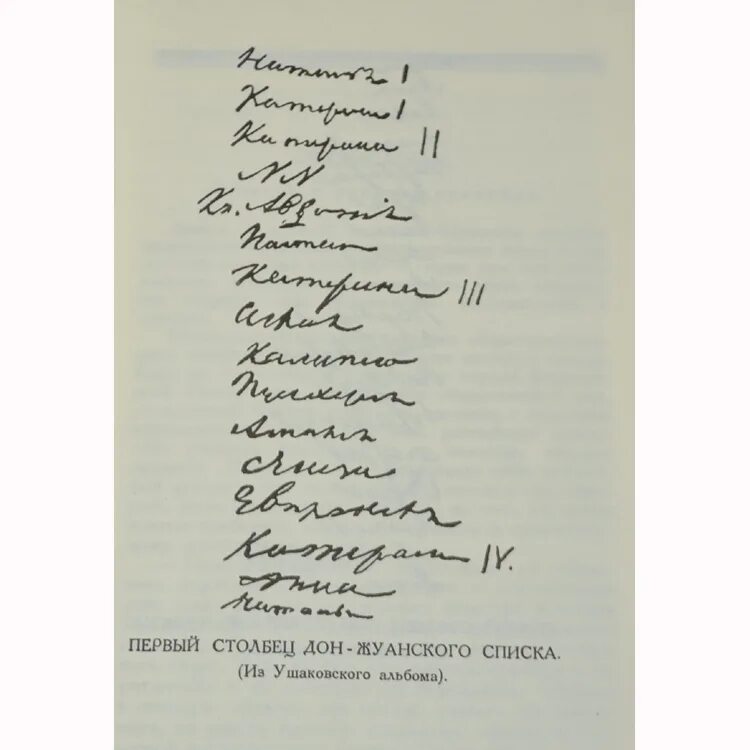 Наталья I
Катерина I
Катерина II
NN
Кн. Авдотия
Настасья
Катерина III
Аглая
Калипсо
Пулхерия
Амалия
Элиза
Евпраксея
Катерина IV.
Анна
Наталья
ПЕРВЫЙ СТОЛБЕЦ ДОН-ЖУАНСКОГО СПИСКА.
(Из Ушаковского альбома).